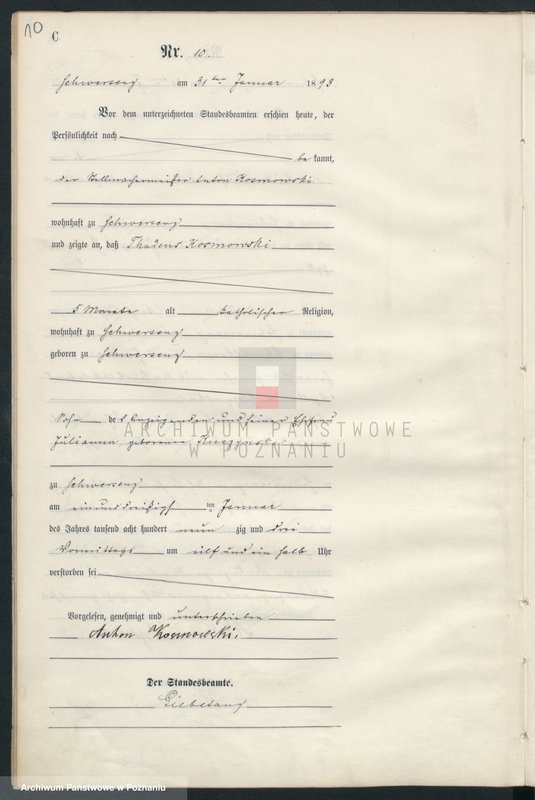 10
C
Nr. 10.
Schwersenz am 31ten Januar 1893.
Vor dem unterzeichneten Standesbeamten erschien heute, der
Persönlichkeit nach
bekannt,
der Stellmachermeister Anton Kosmowski
wohnhaft zu Schwersenz
und zeigte an, daß Thadeus Kosmowski
5 Monate alt katholischer Religion,
wohnhaft zu Schwersenz
geboren zu Schwersenz
Sohn des Anzeigenden und seiner Ehefrau
Julianna geborenen
ARCHIWUM PAŃSTWOWE
W POZNANIU
zu Schwersenz
am einunddreißigsten Januar
des Jahres tausend acht hundert neunzig und drei
Vormittags um eilf und ein halb Uhr
verstorben sei.
Vorgelesen, genehmigt und unterschrieben
Anton Kosmowski.
Der Standesbeamte.
Archiwum Państwowe w Poznaniu